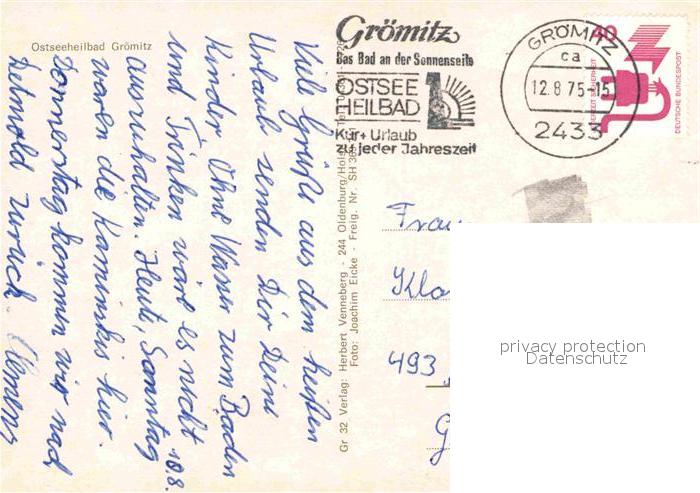 Ostseeheilbad Grömitz
Viele Grüße aus dem heißen
Urlaub senden Dir Deine
Kinder. Ohne Wasser zum Baden
und Trinken wär es nicht
auszuhalten. Heute, Sonntag 10.8.
waren die Kaminskis hier.
Donnerstag kommen wir nach
Detmold zurück. Clemens
Gr 32 Verlag: Herbert Venneberg - 244 Oldenburg/Holst.
Foto: Joachim Eicke - Freig. Nr. SH
Grömitz
Das Bad an der Sonnenseite
OSTSEE
HEILBAD
Kur + Urlaub
zu jeder Jahreszeit
GRÖMITZ
ca
12.8.75-15
2433
40
DEUTSCHE BUNDESPOST
Frau
Kla
493
G
privacy protection
Datenschutz